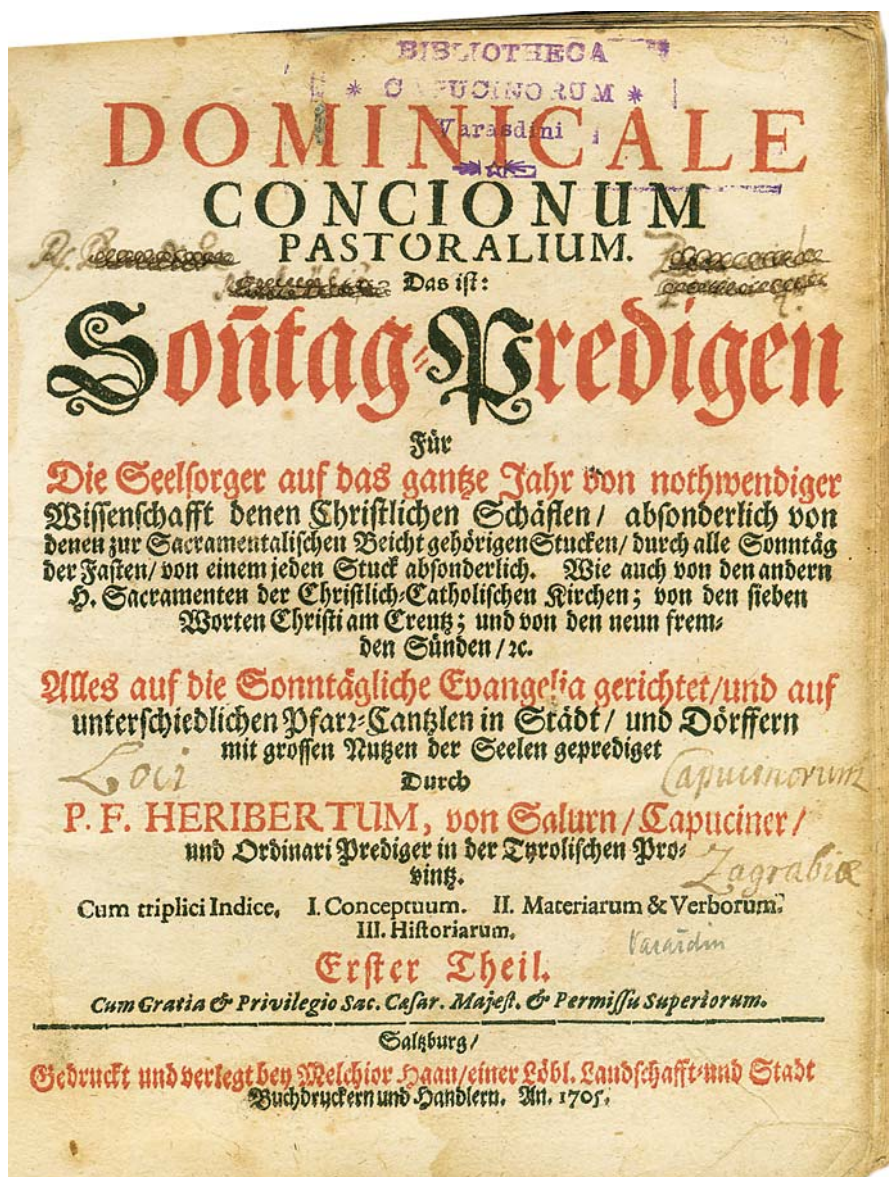 BIBLIOTHECA
* CAPUCINORUM *
Varasdini
DOMINICALE
CONCIONUM
PASTORALIUM.
Das ist:
Soñtag-Predigen
Für
Die Seelsorger auf das gantze Jahr von nothwendiger
Wissenschafft denen Christlichen Schäflen/ absonderlich von
denen zur Sacramentalischen Beicht gehörigen Stucken/ durch alle Sonntäg
der Fasten/ von einem jeden Stuck absonderlich. Wie auch von den andern
H. Sacramenten der Christlich-Catholischen Kirchen; von den sieben
Worten Christi am Creutz; und von den neun frem-
den Sünden/ ꝛc.
Alles auf die Sonntägliche Evangelia gerichtet/ und auf
unterschiedlichen Pfarr-Cantzlen in Städt/ und Dörffern
mit grossen Nutzen der Seelen geprediget
Loci Durch Capucinorum
P. F. HERIBERTUM, von Salurn/ Capuciner/
und Ordinari Prediger in der Tyrolischen Pro-
vintz. Zagrabiæ
Cum triplici Indice, I. Conceptuum. II. Materiarum & Verborum.
III. Historiarum.
Varaždin
Erster Theil.
Cum Gratia & Privilegio Sac. Cæsar. Majest. & Permissu Superiorum.
Saltzburg/
Gedruckt und verlegt bey Melchior Haan/ einer Löbl. Landschafft- und Stadt
Buchdruckern und Handlern. An. 1705.